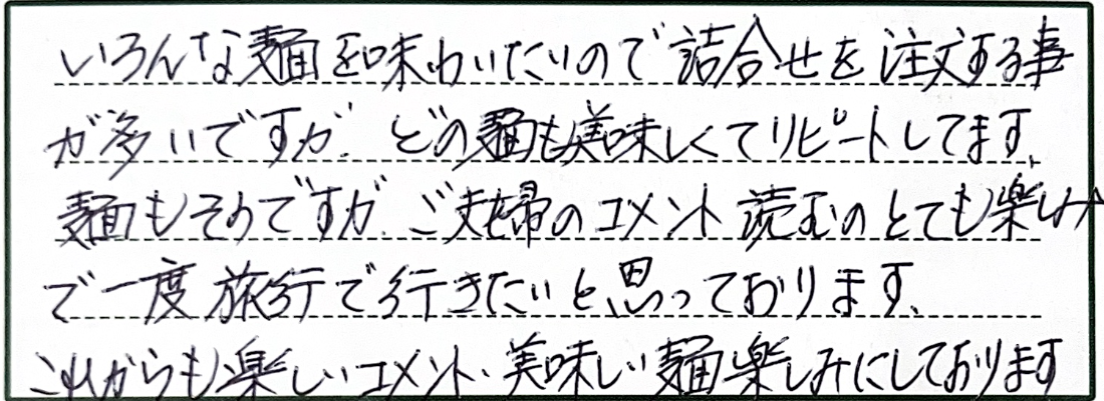 いろんな麺を味わいたいので詰合せを注文する事
が多いですが、どの麺も美味しくてリピートしてます。
麺もそうですが、ご夫婦のコメント読むのとても楽しみ
で一度旅行で行きたいと思っております。
これからも楽しいコメント、美味しい麺楽しみにしております